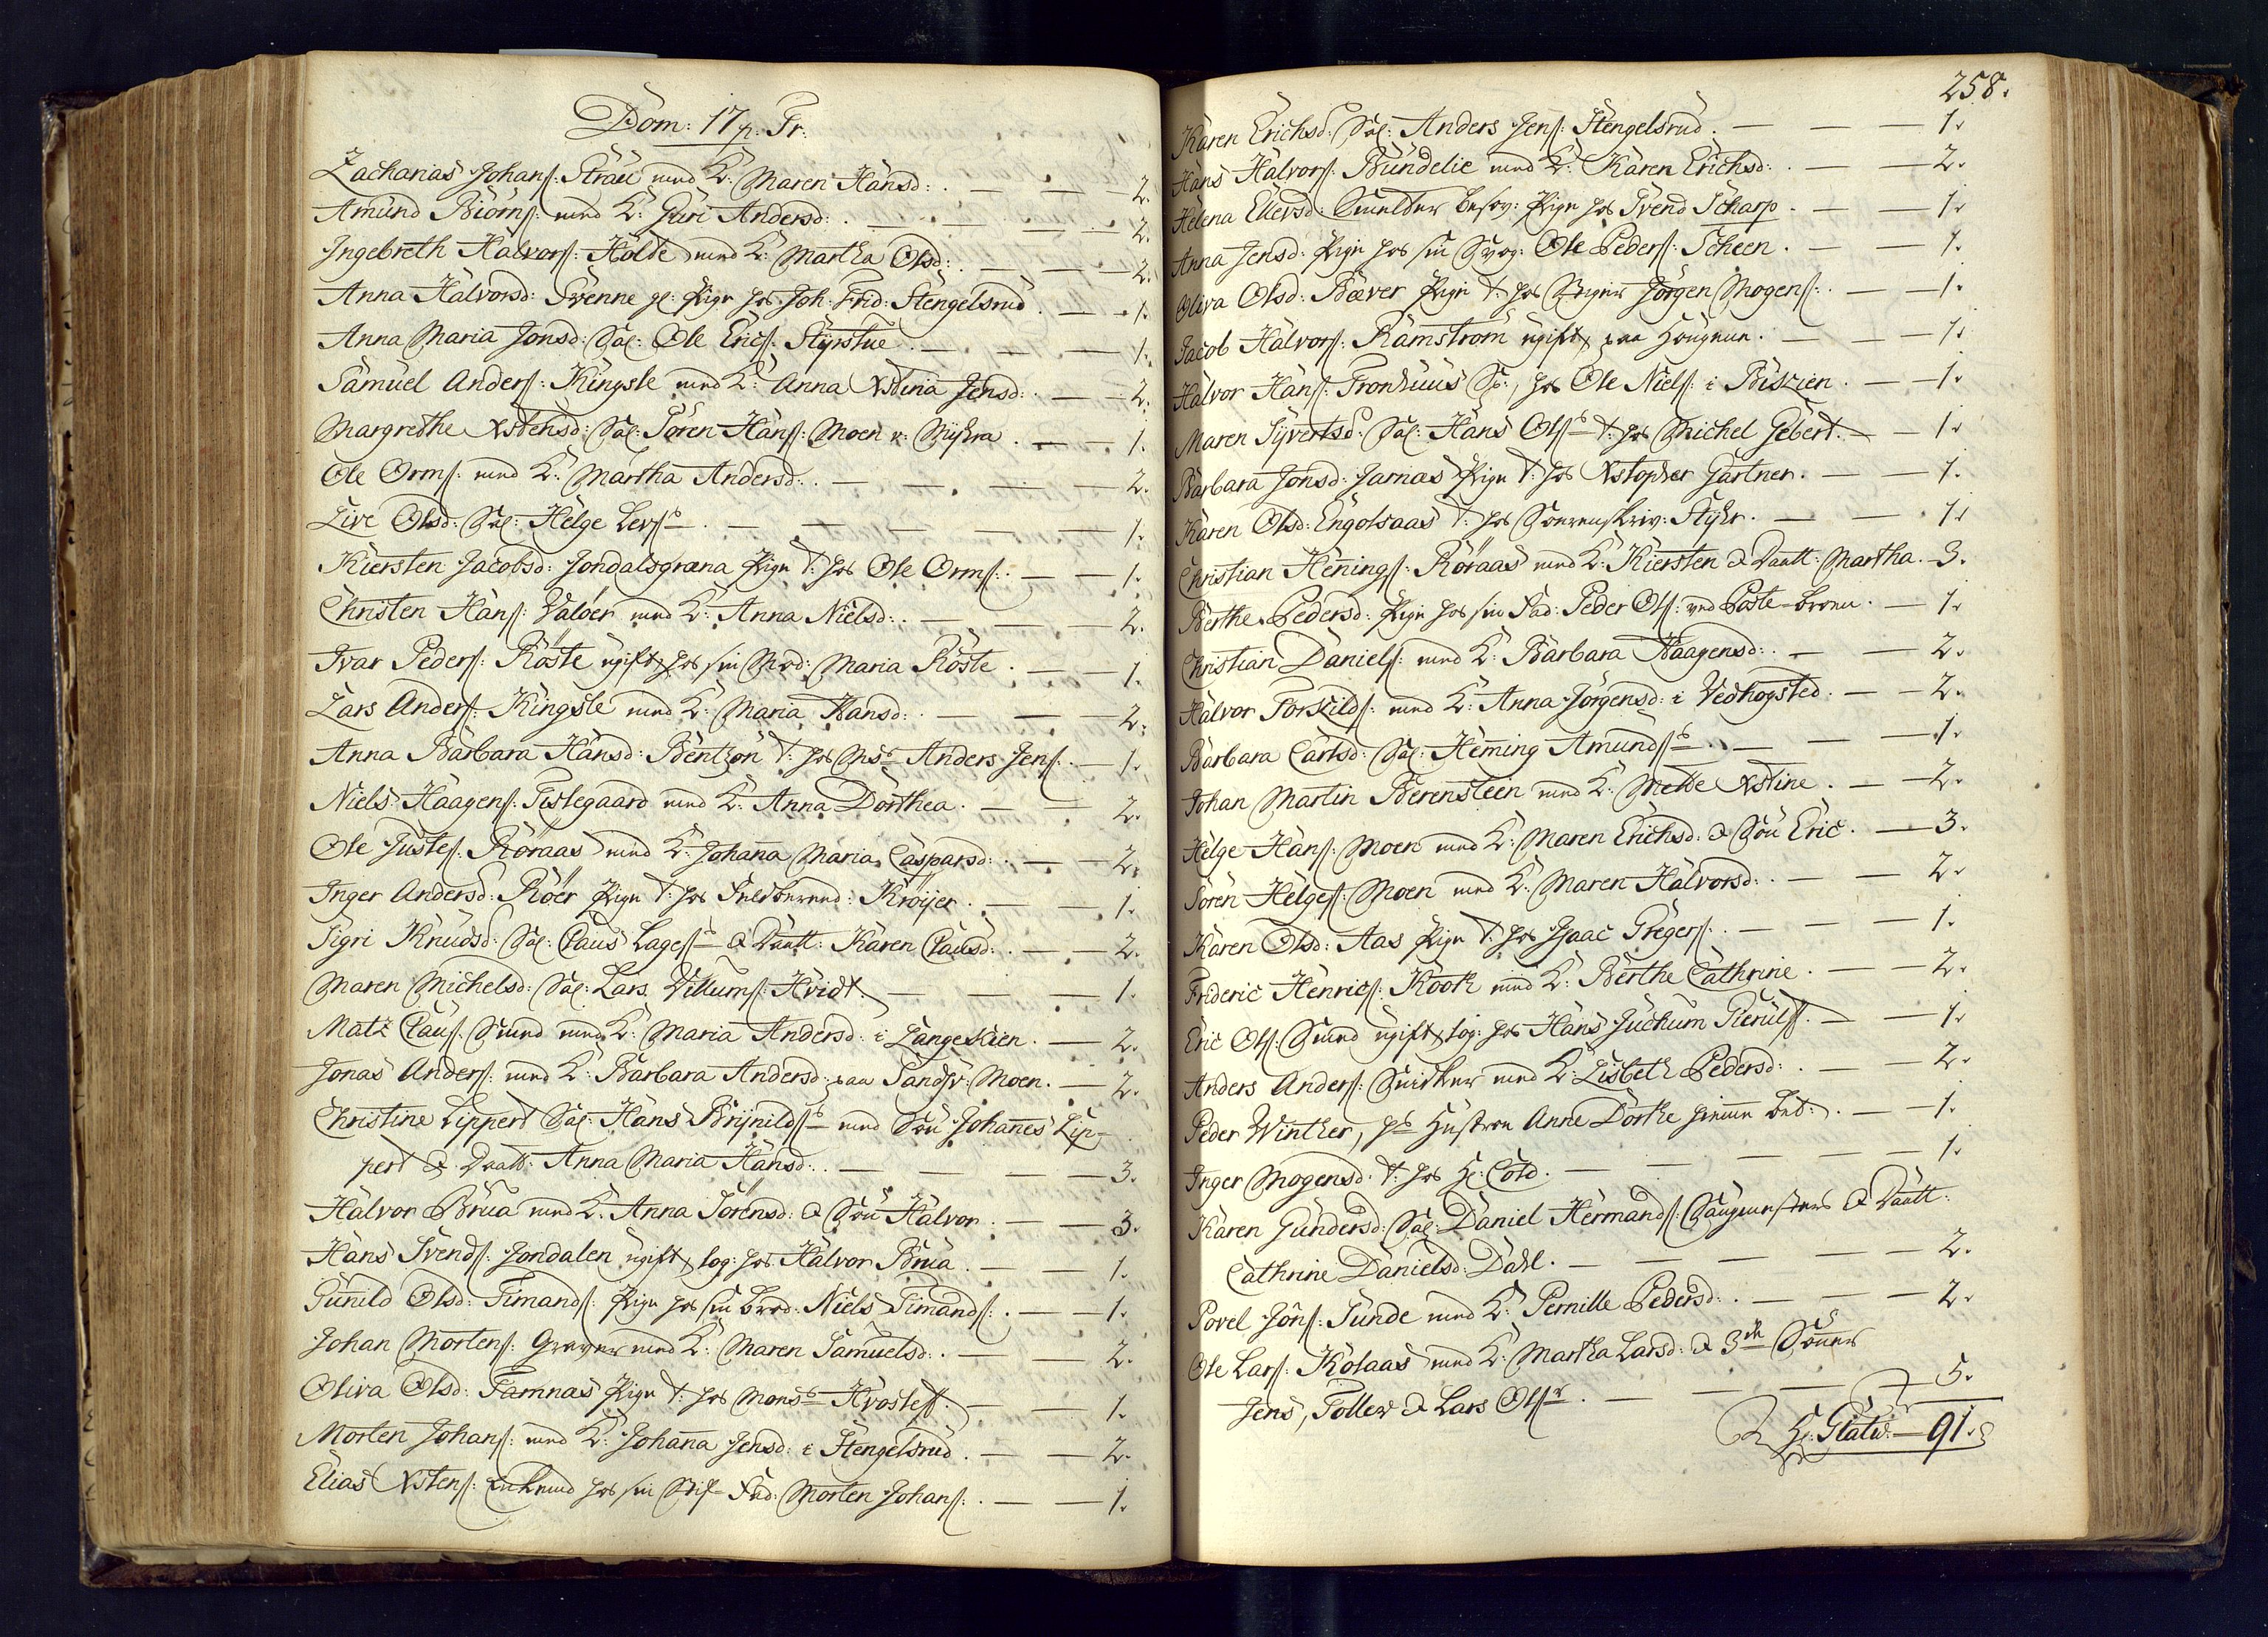 Dom: 17 p. Tr.
Zacharias Johans: Strau med K: Maren Hansd: . — — 2.
Amund Biörns: med K: Guri Andersd: . — — 2.
Ingebreth Halvors: Holde med K: Martha Olsd: . — — 2.
Anna Halvorsd: Svenne gl: Pige hos Joh: Frid: Stengelsrud . — 1.
Anna Maria Jonsd: Sal: Ole Erics: Styrstue . — — 1.
Samuel Anders: Kingsle med K: Anna Xstina Jensd: . — 2.
Margrethe Xstensd: Sal: Sören Hans: Moen . — 1.
Ole Orms: med K: Martha Andersd: . — — 2.
Live Olsd: Sal: Helge Levs: . — — 1.
Kiersten Jacobsd: Jondalsgræna Pige t: hos Ole Orms: . — 1.
Christen Hans: Valöer med K: Anna Nielsd: . — — 2.
Ivar Peders: Röste ugift hos sin Mod: Maria Röste . — 1.
Lars Anders: Kingsle med K: Maria Hansd: . — — 2.
Anna Barbara Hansd: Bentzon t: hos Mr Anders Jens: . — 1.
Niels Haagens: Tislegaard med K: Anna Dorthea . — 2.
Ole Justes: Röraas med K: Johanna Maria Caspersd: . — 2.
Inger Andersd: Röer Pige t: hos Kröijer . — 1.
Sigri Knudsd: Sal: Claus Lages: & Daatt: Karen Clausd: . — 2.
Maren Michelsd: Sal: Lars Villums: Hvidt . — — 1.
Matz Claus: Smed med K: Maria Andersd: i Langeskien . — 2.
Jonas Anders: med K: Barbara Andersd: paa Sandsv: Moen . — 2.
Christine Lippert Sal: Hans Brijnilds: med Sön Johannes Lip-
pert & Daatt: Anna Maria Hansd: . — — 3.
Halvor Brua med K: Anna Sörensd: & Sön Halvor . — 3.
Hans Svends: Jondalen ugift log: hos Halvor Brua . — 1.
Gunild Olsd: Timands: Pige hos sin Brod: Niels Timands: . — 1.
Johan Mortens: Graver med K: Maren Samuelsd: . — 2.
Oliva Olsd: Jamnæs Pige t: hos Monsr . — 1.
Morten Johans: med K: Johanna Jensd: i Stengelsrud . — 2.
Elias Xstens: Enkemd hos sin Stif-Fad: Morten Johans: . — 1.
258.
Karen Erichsd: Sal: Anders Jens: Stengelsrud . — — 1.
Hans Halvors: Bundelie med K: Karen Erichsd: . — 2.
Helena Ellevsd: Pige hos Svend Scharp . — 1.
Anna Jensd: Pige hos sin Svog: Ole Peders: Scheen . — 1.
Oliva Olsd: Bæver Pige t: hos Jörgen Mogens: . — 1.
Jacob Halvors: Ramström ugift paa Hougene . — 1.
Halvor Hans: Fronhuus Sp:, hos Ole Niels: i Biskien . — 1.
Maren Syvertsd: Sal: Hans Ols: t: hos Michel Gebert . — 1.
Barbara Jonsd: Jarnæs Pige t: hos Xstopher Gartner . — 1.
Karen Olsd: Engolsaas t: hos Sorenskriv: . — 1.
Christian Hennings: Röraas med K: Kiersten & Daatt: Martha . 3.
Berthe Pedersd: Pige hos sin Fad: Peder Ols: ved Poste-broen . — 1.
Christian Daniels: med K: Barbara Haagensd: . — 2.
Halvor Torkilds: med K: Anna Jörgensd: i Vedhogsted . — 2.
Barbara Carlsd: Sal: Heming Amunds: . — 1.
Johan Martin Berensteen med K: Mette Xstine . — 2.
Helge Hans: Moen med K: Maren Erichsd: & Sön Eric . — 3.
Sören Helges: Moen med K: Maren Halvorsd: . — 2.
Karen Olsd: Aas Pige t: hos Isaac Gregers: . — 1.
Frideric Henrics: Kooth med K: Berthe Cathrine . — 2.
Eric Ols: Smed ugift log: hos Hans Juchum . — 1.
Anders Anders: Snidker med K: Lisbeth Pedersd: . — 2.
Peder Winther, hs Hustroe Anne Dorthe hieme bet: . — 1.
Inger Mogensd: t: hos Hr: Cold . — — 1.
Karen Gundersd: Sal: Daniel Hermands: & Daatt:
Cathrine Danielsd: Dahl . — — 2.
Povel Jöns: Sunde med K: Pernille Pedersd: . — 2.
Ole Lars: Kolaas med K: Martha Larsd: & 3de Sönner
Jens, Tollev & Lars Ols: . — — 5.
Hr: Glatv: — 91.